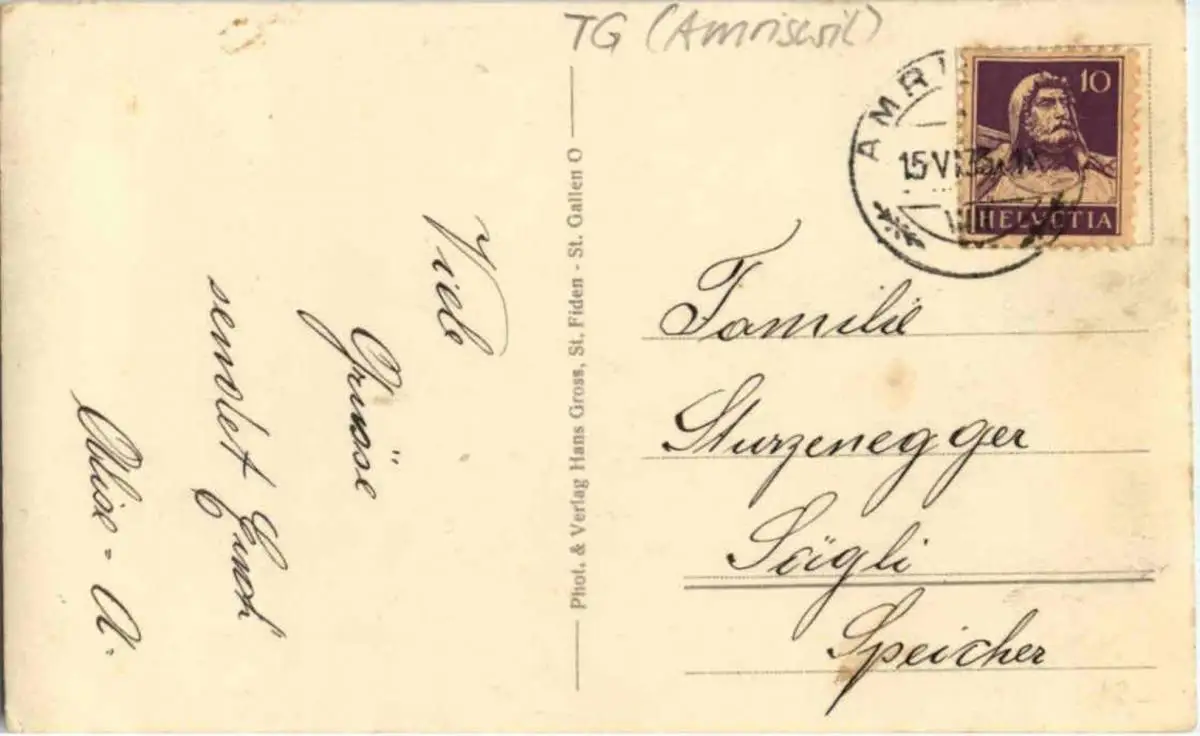 TG (Amriswil)
Viele
Grüsse
sendet Euch
Alise - A.
Phot. & Verlag Hans Gross, St. Fiden - St. Gallen O
AMRI
15 VI 33
10
HELVETIA
Familie
Sturzenegger
Sägli
Speicher